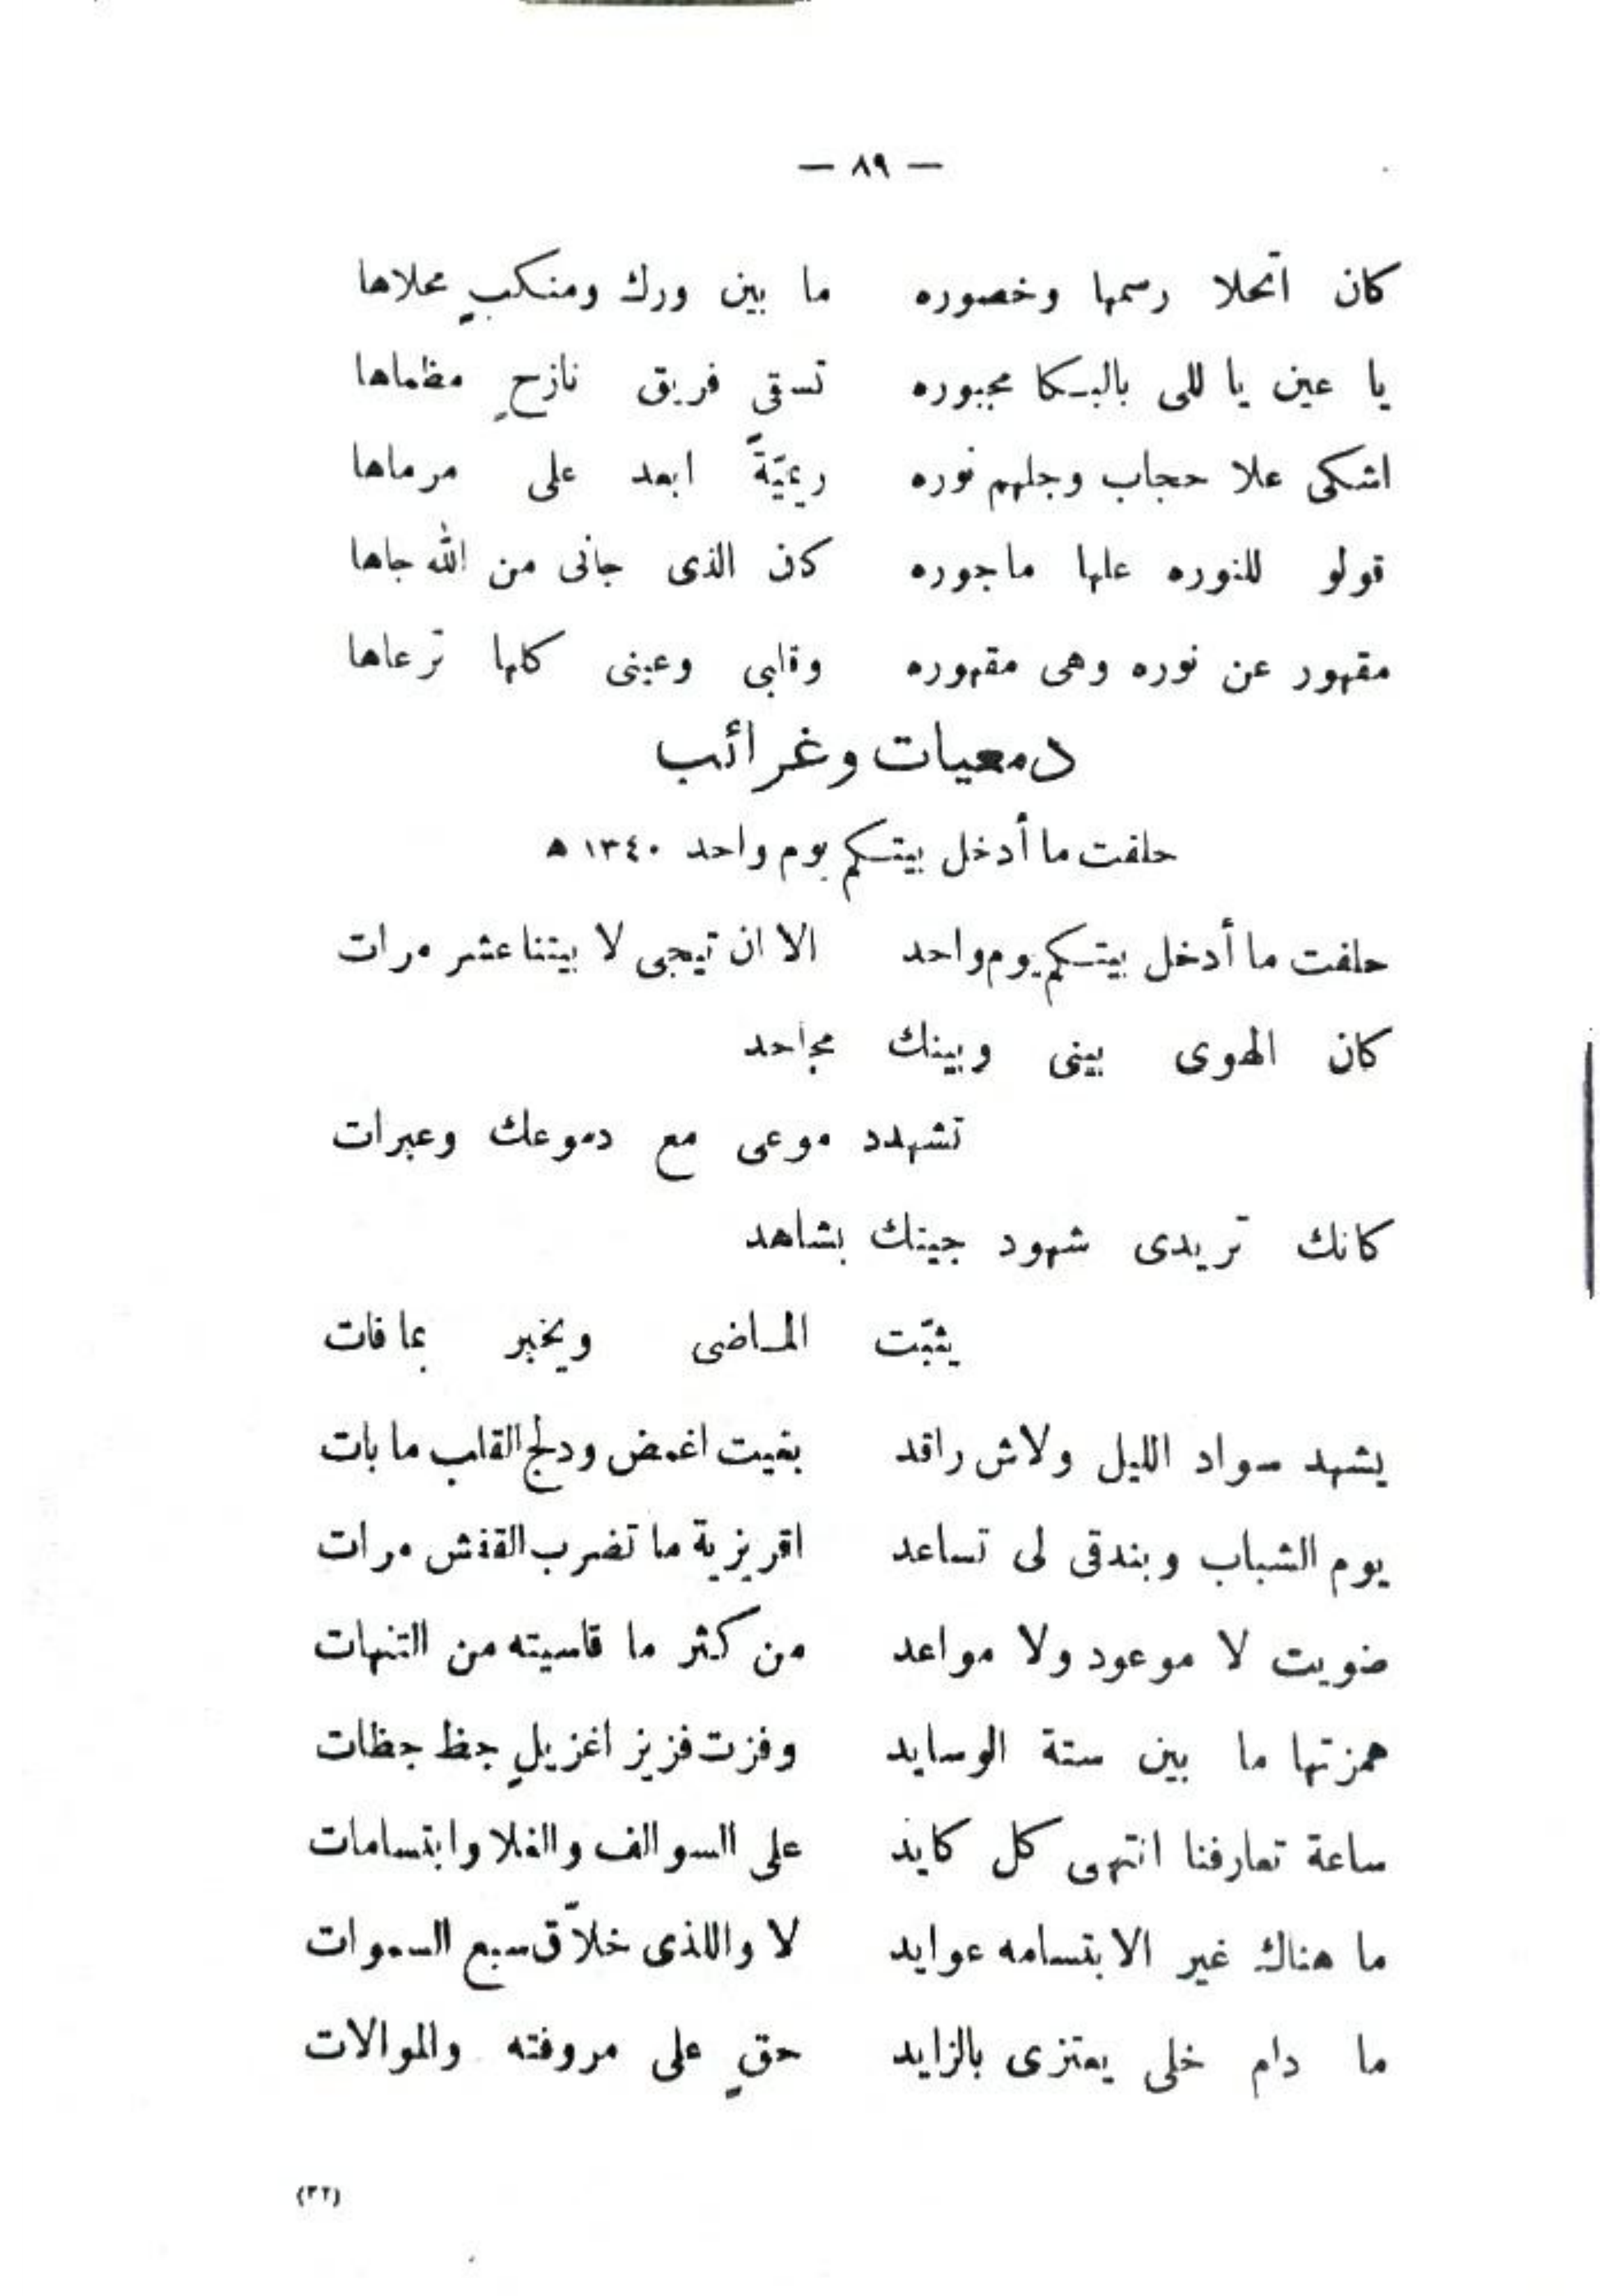 — ٨٩ —
كان اتحلا رسمها وخصوره ما بين ورك ومنكبٍ محلاها
يا عين يا للى بالبكا مجبوره تسقى فريق نازحٍ مظماها
اشكى علا حجاب وجلهم نوره ريميّةً ابعد على مرماها
قولو للنوره عليها ماجوره كان الذى جانى من الله جاها
مقهور عن نوره وهى مقهوره وقلبى وعينى كلها ترعاها
دمعيات وغرائب
حلفت ما أدخل بيتكم يوم واحد ١٣٤٠ ه
حلفت ما أدخل بيتكم يوم واحد الا ان تيجى لا بيتنا عشر مرات
كان الهوى بينى وبينك مجاحد
تشهدد موعى مع دموعك وعبرات
كانك تريدى شهود جيتك بشاهد
يثبّت الماضى ويخبر بما فات
يشهد سواد الليل ولاش راقد بغيت اغمض ودلج القلب ما بات
يوم الشباب وبندقى لى تساعد اقريزية ما تضرب القفش مرات
ضويت لا موعود ولا مواعد من كثر ما قاسيته من التنهات
همزتها ما بين ستة الوسايد وفزت فزيز اغزيلٍ جظ جظات
ساعة تعارفنا انتهى كل كايد على السوالف والغلا وابتسامات
ما هناك غير الابتسامه عوايد لا واللذى خلاّق سبع السموات
ما دام خلى يعتزى بالزايد حقٍ على مروفته والموالات